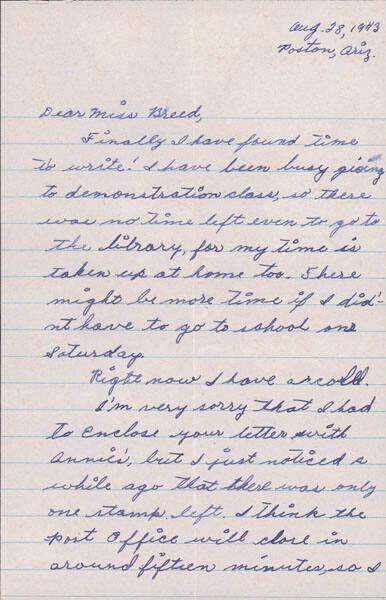 Aug. 28, 1943
Poston, Ariz.
Dear Miss Breed,
Finally I have found time
to write! I have been busy going
to demonstration class, so there
was no time left even to go to
the library, for my time is
taken up at home too. There
might be more time if I did'-
nt have to go to school on
Saturday.
Right now I have a cold.
I'm very sorry that I had
to enclose your letter with
Annie's, but I just noticed a
while ago that there was only
one stamp left. I think the
Post Office will close in
around fifteen minutes, so I